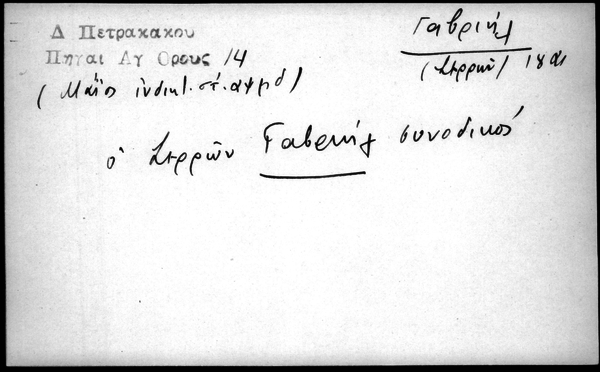 Δ Πετρακακου
Πηγαι Αγ Ορους 14
(Μάϊος ἰνδικτ. στ. αψμδ)
Γαβριήλ
(Σερρῶν) 18 αι
ὁ Σερρῶν Γαβριήλ συνοδικός